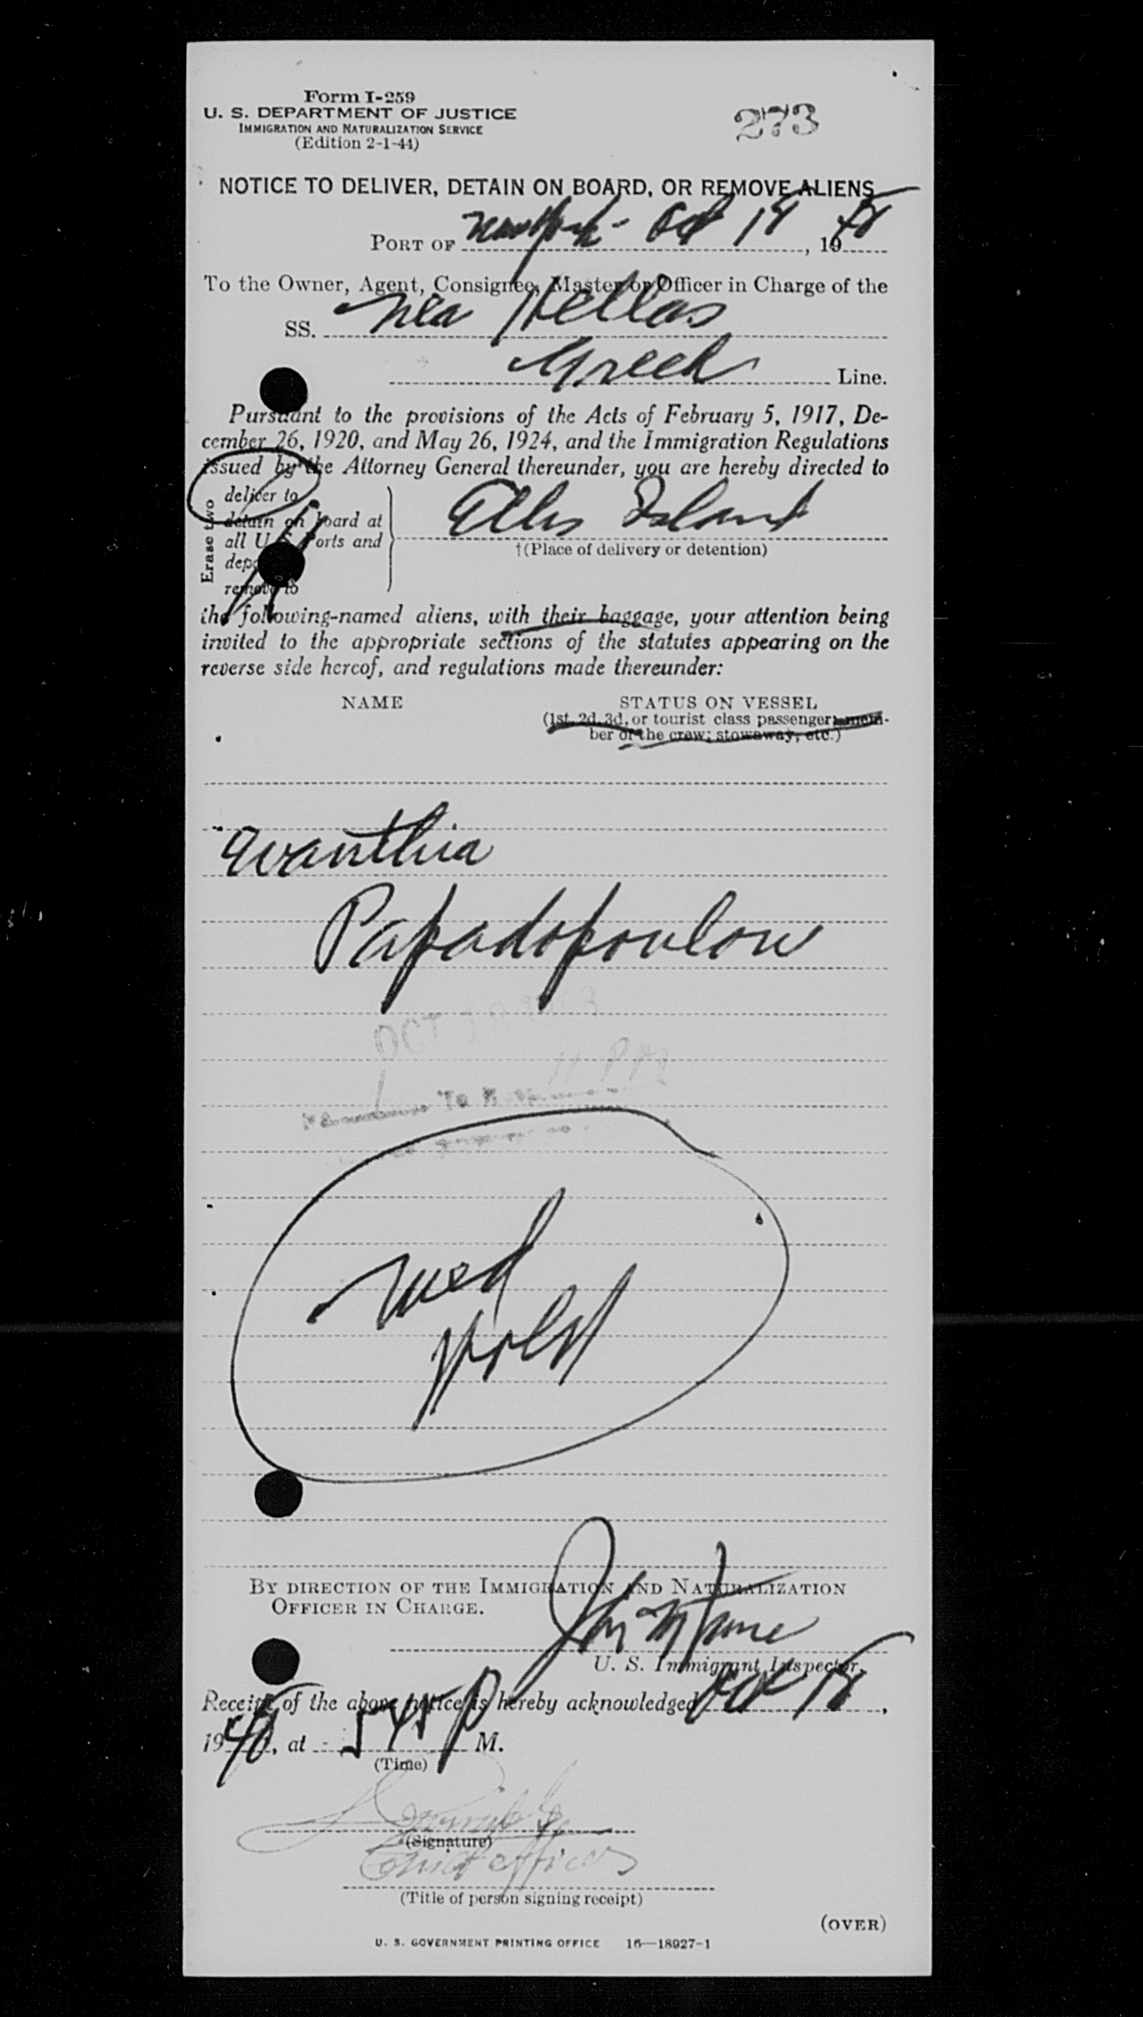 Form I-259
U. S. DEPARTMENT OF JUSTICE
IMMIGRATION AND NATURALIZATION SERVICE
(Edition 2-1-44)
273
NOTICE TO DELIVER, DETAIN ON BOARD, OR REMOVE ALIENS
PORT OF New York - Oct 18, 1948
To the Owner, Agent, Consignee, Master or Officer in Charge of the
SS. Nea Hellas
Greek Line.
Pursuant to the provisions of the Acts of February 5, 1917, De-
cember 26, 1920, and May 26, 1924, and the Immigration Regulations
issued by the Attorney General thereunder, you are hereby directed to
Erase two
deliver to
detain on board at
all U. S. ports and
remove to
Ellis Island
†(Place of delivery or detention)
the following-named aliens, with their baggage, your attention being
invited to the appropriate sections of the statutes appearing on the
reverse side hereof, and regulations made thereunder:
NAME
STATUS ON VESSEL
(1st, 2d, 3d, or tourist class passenger; mem-
ber of the crew; stowaway, etc.)
Evanthia
Papadopoulou
OCT
PM
To
med
BY DIRECTION OF THE IMMIGRATION AND NATURALIZATION
OFFICER IN CHARGE.
U. S. Immigrant Inspector.
Receipt of the above notice is hereby acknowledged Oct 18,
1948, at 545 P M.
(Time)
(Signature)
Chief officer
(Title of person signing receipt)
(OVER)
U. S. GOVERNMENT PRINTING OFFICE 16—18927-1